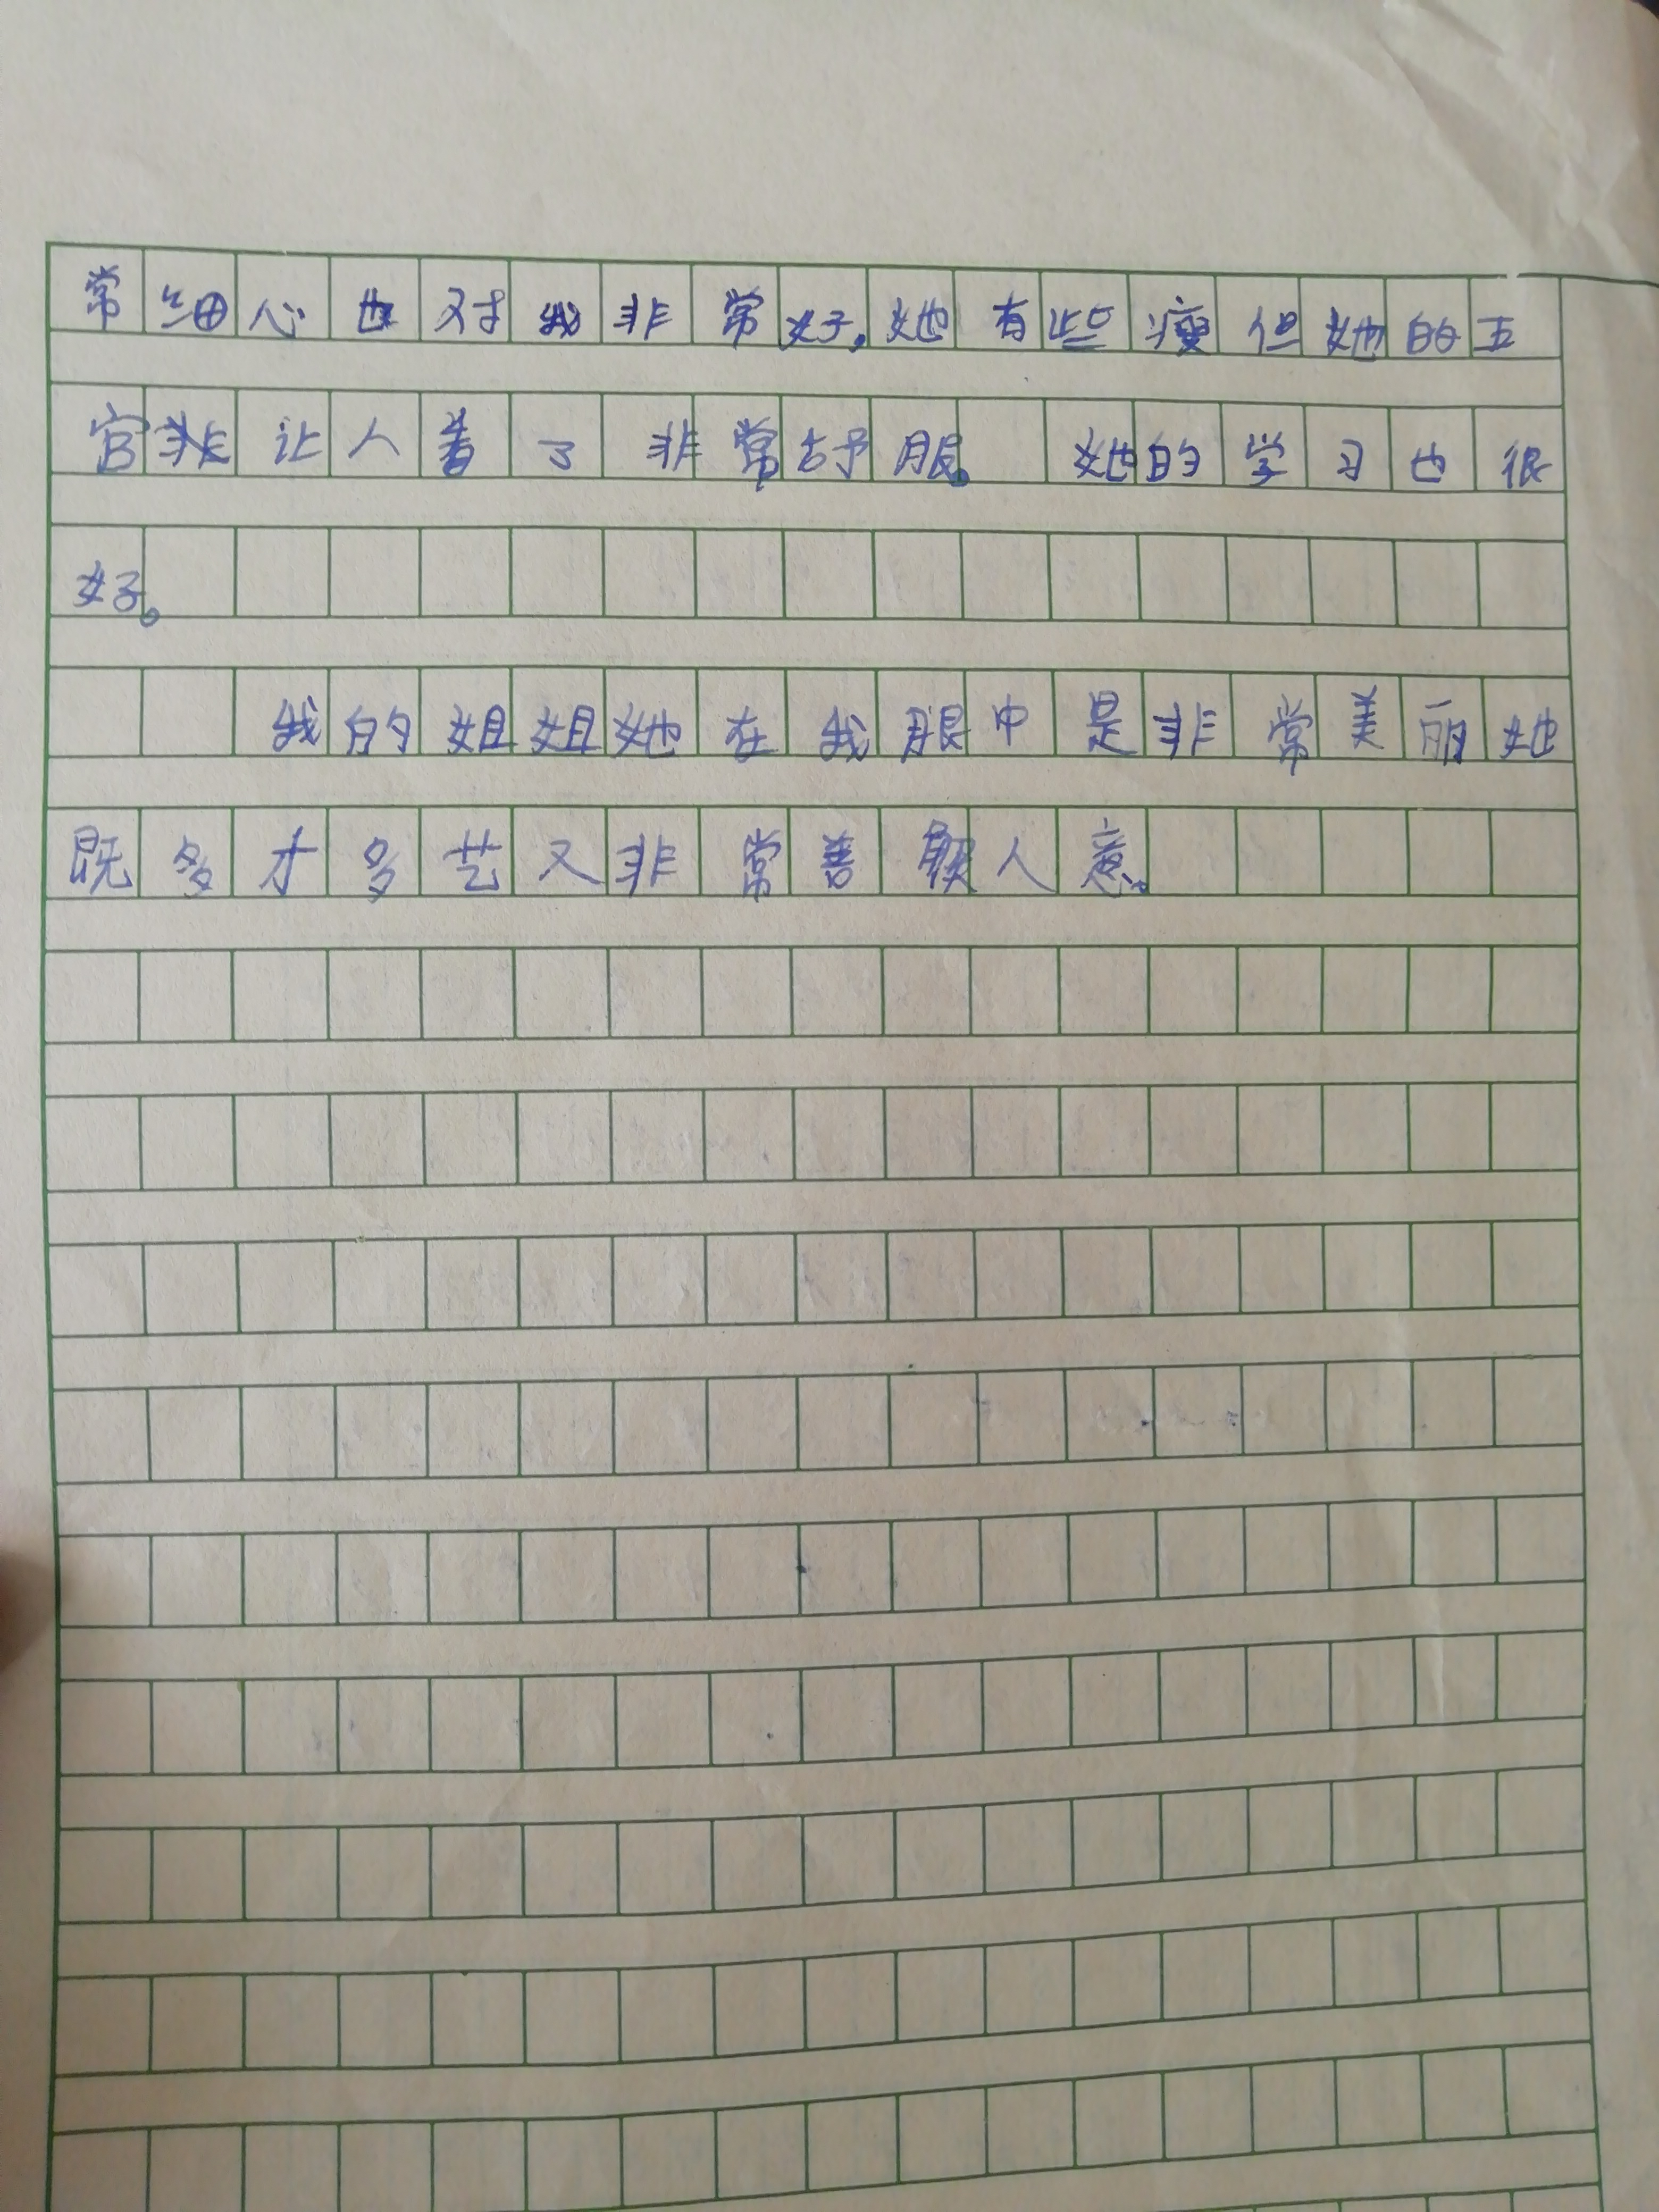 常细心也对我非常好。她有些瘦但她的五
官让人看了非常舒服。她的学习也很
好。
我的姐姐她在我眼中是非常美丽她
既多才多艺又非常善解人意。